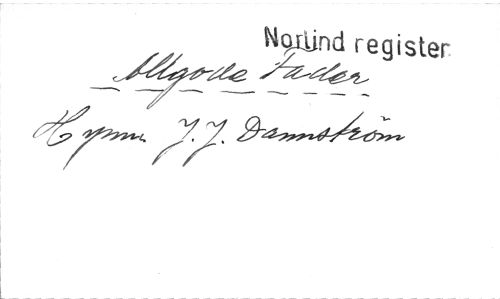 Norlind register.
Allgode Fader
Hymn. J. J. Dannström